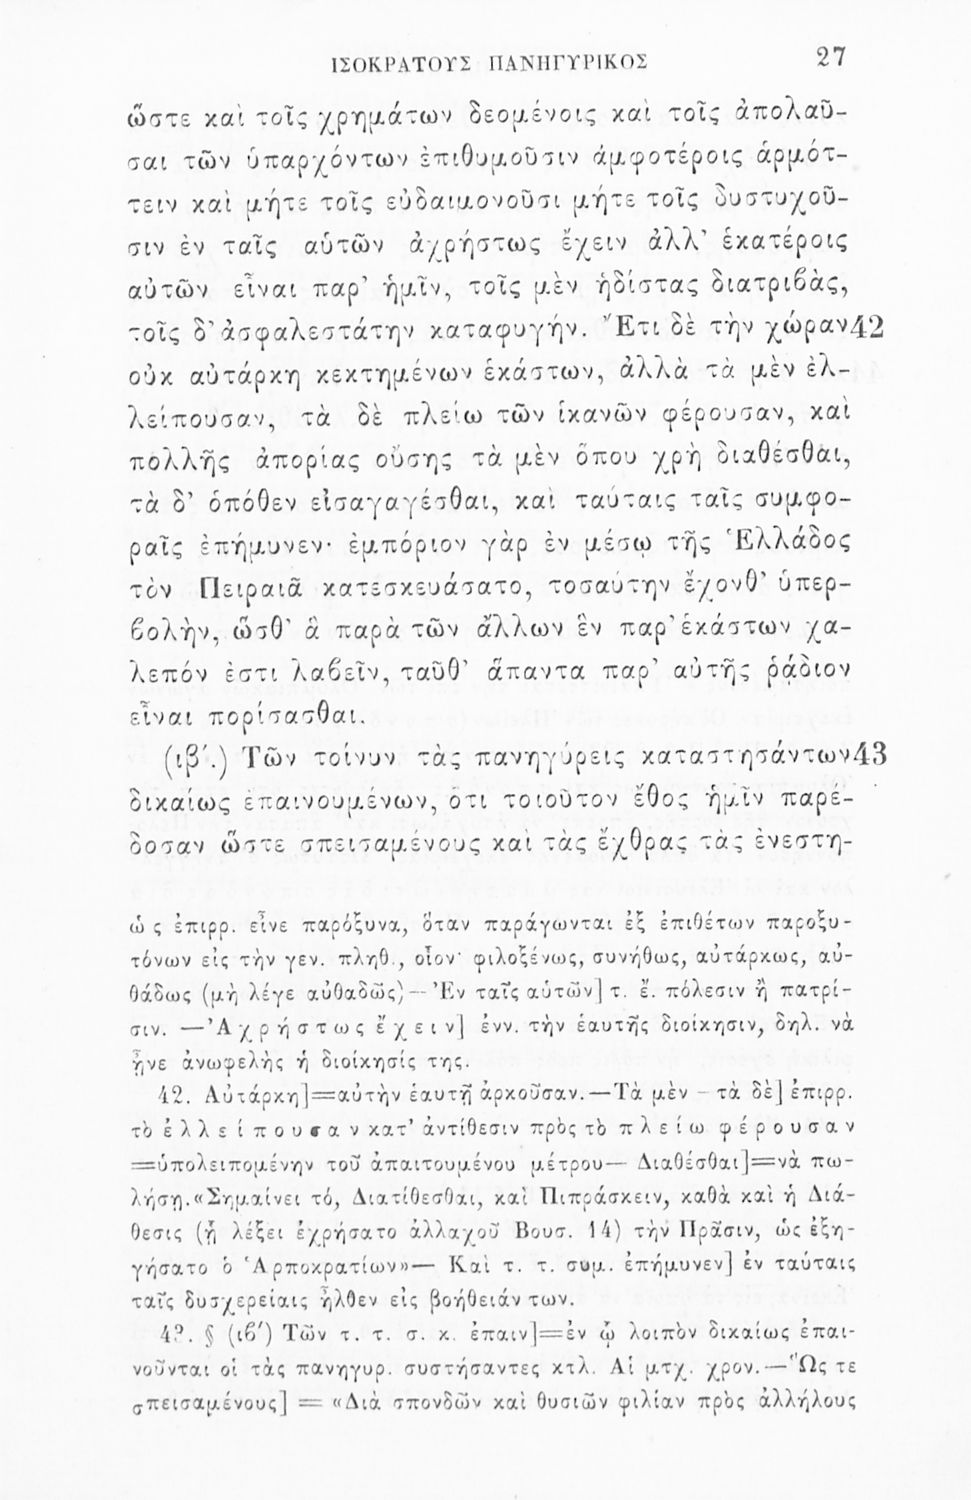 ΙΣΟΚΡΑΤΟΥΣ ΠΑΝΗΓΥΡΙΚΟΣ 27
ὥστε καὶ τοῖς χρημάτων δεομένοις καὶ τοῖς ἀπολαῦ-
σαι τῶν ὑπαρχόντων ἐπιθυμοῦσιν ἀμφοτέροις ἁρμότ-
τειν καὶ μήτε τοῖς εὐδαιμονοῦσι μήτε τοῖς δυστυχοῦ-
σιν ἐν ταῖς αὑτῶν ἀχρήστως ἔχειν ἀλλ' ἑκατέροις
αὐτῶν εἶναι παρ' ἡμῖν, τοῖς μὲν ἡδίστας διατριβὰς,
τοῖς δ' ἀσφαλεστάτην καταφυγήν. Ἔτι δὲ τὴν χώραν 42
οὐκ αὐτάρκη κεκτημένων ἑκάστων, ἀλλὰ τὰ μὲν ἐλ-
λείπουσαν, τὰ δὲ πλείω τῶν ἱκανῶν φέρουσαν, καὶ
πολλῆς ἀπορίας οὔσης τὰ μὲν ὅπου χρὴ διαθέσθαι,
τὰ δ' ὁπόθεν εἰσαγαγέσθαι, καὶ ταύταις ταῖς συμφο-
ραῖς ἐπήμυνεν· ἐμπόριον γὰρ ἐν μέσῳ τῆς Ἑλλάδος
τὸν Πειραιᾶ κατεσκευάσατο, τοσαύτην ἔχονθ' ὑπερ-
βολὴν, ὥσθ' ἃ παρὰ τῶν ἄλλων ἓν παρ' ἑκάστων χα-
λεπόν ἐστι λαβεῖν, ταῦθ' ἅπαντα παρ' αὐτῆς ῥᾴδιον
εἶναι πορίσασθαι.
(ιβ΄.) Τῶν τοίνυν τὰς πανηγύρεις καταστησάντων 43
δικαίως ἐπαινουμένων, ὅτι τοιοῦτον ἔθος ἡμῖν παρέ-
δοσαν ὥστε σπεισαμένους καὶ τὰς ἔχθρας τὰς ἐνεστη-
ώς ἐπιρρ. εἶνε παρόξυνα, ὅταν παράγωνται ἐξ ἐπιθέτων παροξυ-
τόνων εἰς τὴν γεν. πληθ., οἷον· φιλοξένως, συνήθως, αὐτάρκως, αὐ-
θάδως (μὴ λέγε αὐθαδῶς) — Ἐν ταῖς αὑτῶν] τ. ἔ. πόλεσιν ἢ πατρί-
σιν. — Ἀχρήστως ἔχειν] ἐνν. τὴν ἑαυτῆς διοίκησιν, δηλ. νὰ
ᾖνε ἀνωφελὴς ἡ διοίκησίς της.
42. Αὐτάρκη]=αὐτὴν ἑαυτῇ ἀρκοῦσαν.—Τὰ μὲν - τὰ δὲ] ἐπιρρ.
τὸ ἐλλείπουσαν κατ' ἀντίθεσιν πρὸς τὸ πλείω φέρουσαν
=ὑπολειπομένην τοῦ ἀπαιτουμένου μέτρου— Διαθέσθαι]=νὰ πω-
λήσῃ.«Σημαίνει τό, Διατίθεσθαι, καὶ Πιπράσκειν, καθὰ καὶ ἡ Διά-
θεσις (ᾗ λέξει ἐχρήσατο ἀλλαχοῦ Βουσ. 14) τὴν Πρᾶσιν, ὡς ἐξη-
γήσατο ὁ Ἁρποκρατίων»— Καὶ τ. τ. συμ. ἐπήμυνεν] ἐν ταύταις
ταῖς δυσχερείαις ἦλθεν εἰς βοήθειάν των.
43. § (ιβ΄) Τῶν τ. τ. σ. κ. ἐπαιν]=ἐν ᾧ λοιπὸν δικαίως ἐπαι-
νοῦνται οἱ τὰς πανηγυρ. συστήσαντες κτλ. Αἱ μτχ. χρον.—Ὥς τε
σπεισαμένους] = «Διὰ σπονδῶν καὶ θυσιῶν φιλίαν πρὸς ἀλλήλους